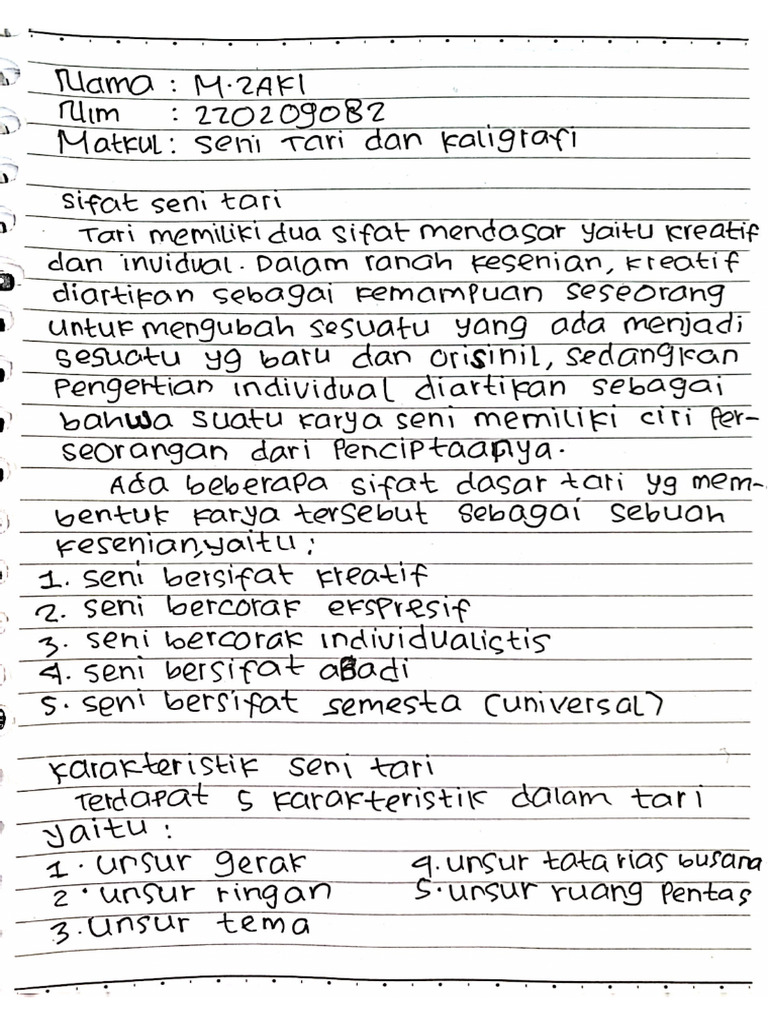 Nama : M.ZAKI
Nim : 220209082
Matkul : Seni Tari dan Kaligrafi
Sifat seni tari
Tari memiliki dua sifat mendasar yaitu kreatif
dan invidual. Dalam ranah kesenian, kreatif
diartikan sebagai kemampuan seseorang
untuk mengubah sesuatu yang ada menjadi
sesuatu yg baru dan orisinil, sedangkan
pengertian individual diartikan sebagai
bahwa suatu karya seni memiliki ciri per-
seorangan dari penciptaanya.
Ada beberapa sifat dasar tari yg mem-
bentuk karya tersebut sebagai sebuah
kesenian, yaitu :
1. seni bersifat kreatif
2. seni bercorak ekspresif
3. seni bercorak individualistis
4. seni bersifat abadi
5. seni bersifat semesta (universal)
karakteristik seni tari
Terdapat 5 karakteristik dalam tari
yaitu :
1. unsur gerak 4. unsur tata rias busana
2. unsur ringan 5. unsur ruang pentas
3. unsur tema